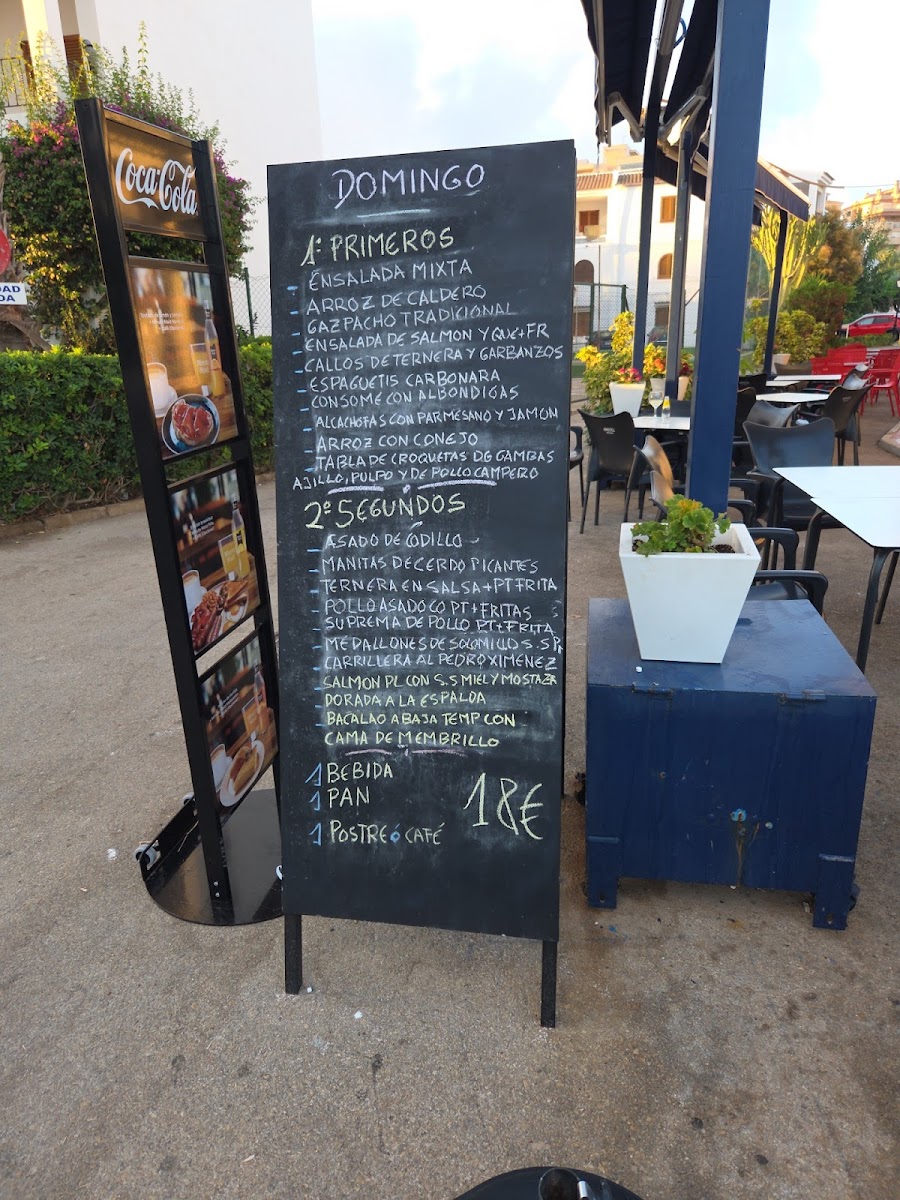 Coca-Cola
DAD
DA
DOMINGO
1º PRIMEROS
- ENSALADA MIXTA
- ARROZ DE CALDERO
- GAZPACHO TRADICIONAL
- ENSALADA DE SALMON Y QUE+FR
- CALLOS DE TERNERA Y GARBANZOS
- ESPAGUETIS CARBONARA
- CONSOME CON ALBONDIGAS
- ALCACHOFAS CON PARMESANO Y JAMON
- ARROZ CON CONEJO
- TABLA DE CROQUETAS DG GAMBAS
AJILLO, PULPO Y DE POLLO CAMPERO
2º SEGUNDOS
- ASADO DE CODILLO
- MANITAS DE CERDO PICANTES
- TERNERA EN SALSA + PT FRITA
- POLLO ASADO CO PT + FRITAS
- SUPREMA DE POLLO PT + FRITA
- MEDALLONES DE SOLOMILLO S.SP
- CARRILLERA AL PEDRO XIMENEZ
- SALMON PL CON S.S MIEL Y MOSTAZA
- DORADA A LA ESPALDA
- BACALAO A BAJA TEMP CON
CAMA DE MEMBRILLO
1 BEBIDA
1 PAN
1 POSTRE ó CAFÉ
18€